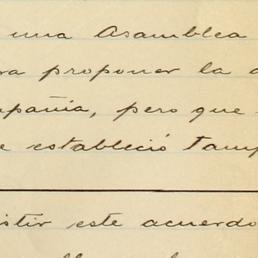 una Asamblea
ra proponer la d
pañia, pero que
e estableció tamp
stir este acuerdo